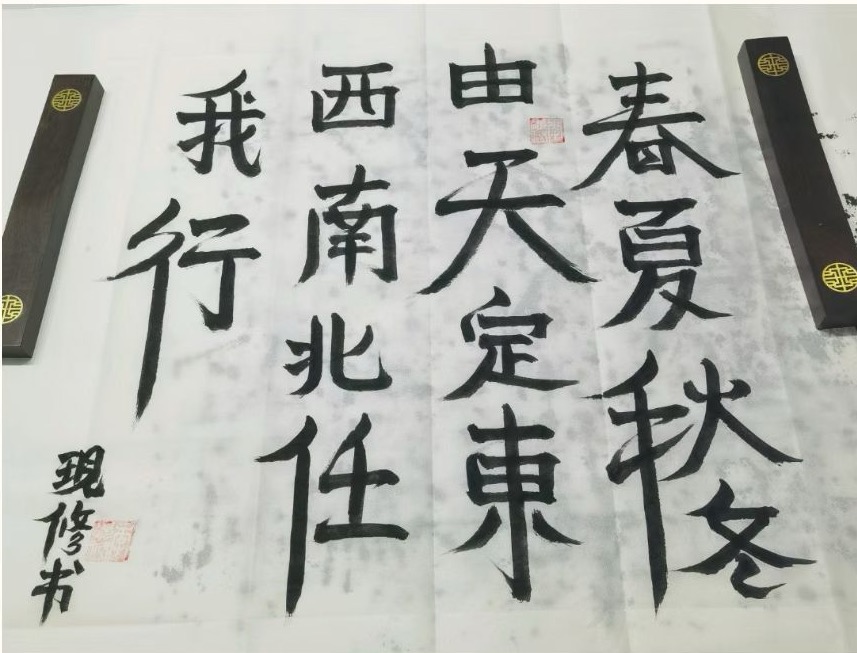 春夏秋冬
由天定東
西南北任
我行
現修书